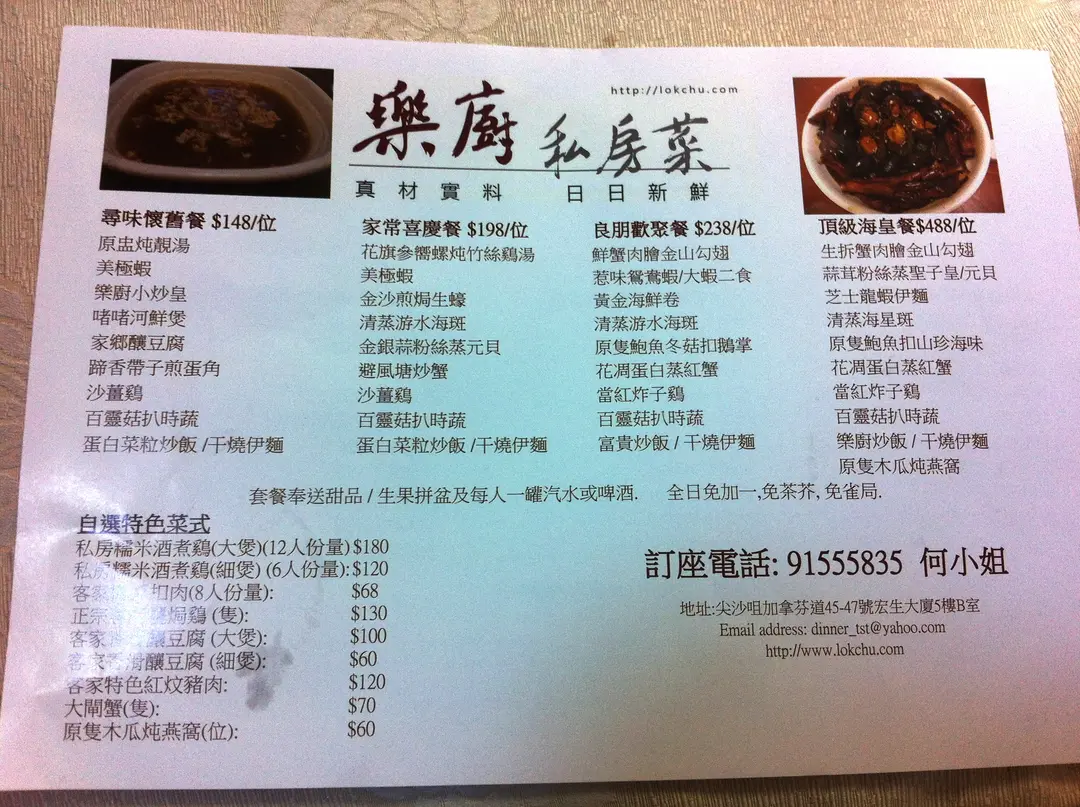 http://lokchu.com
樂廚 私房菜
真材實料 日日新鮮
尋味懷舊餐 $148/位
原盅炖靚湯
美極蝦
樂廚小炒皇
啫啫河鮮煲
家鄉釀豆腐
蹄香帶子煎蛋角
沙薑鷄
百靈菇扒時蔬
蛋白菜粒炒飯 /干燒伊麵
家常喜慶餐 $198/位
花旗參嚮螺炖竹絲鷄湯
美極蝦
金沙煎焗生蠔
清蒸游水海斑
金銀蒜粉絲蒸元貝
避風塘炒蟹
沙薑鷄
百靈菇扒時蔬
蛋白菜粒炒飯 /干燒伊麵
良朋歡聚餐 $238/位
鮮蟹肉膾金山勾翅
惹味鴛鴦蝦/大蝦二食
黃金海鮮卷
清蒸游水海斑
原隻鮑魚冬菇扣鵝掌
花凋蛋白蒸紅蟹
當紅炸子鷄
百靈菇扒時蔬
富貴炒飯 / 干燒伊麵
頂級海皇餐$488/位
生拆蟹肉膾金山勾翅
蒜茸粉絲蒸聖子皇/元貝
芝士龍蝦伊麵
清蒸海星斑
原隻鮑魚扣山珍海味
花凋蛋白蒸紅蟹
當紅炸子鷄
百靈菇扒時蔬
樂廚炒飯 / 干燒伊麵
原隻木瓜炖燕窩
套餐奉送甜品 / 生果拼盆及每人一罐汽水或啤酒. 全日免加一,免茶芥, 免雀局.
自選特色菜式
私房糯米酒煮鷄(大煲)(12人份量) $180
私房糯米酒煮鷄(細煲) (6人份量): $120
客家 扣肉(8人份量): $68
正宗 焗鷄 (隻): $130
客家 釀豆腐 (大煲): $100
客家 滑釀豆腐 (細煲): $60
客家特色紅炆豬肉: $120
大閘蟹(隻): $70
原隻木瓜炖燕窩(位): $60
訂座電話: 91555835 何小姐
地址:尖沙咀加拿芬道45-47號宏生大廈5樓B室
Email address: dinner_tst@yahoo.com
http://www.lokchu.com